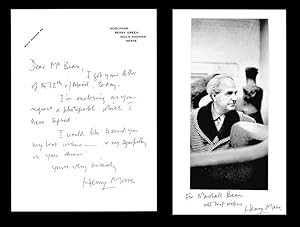 HOGLANDS
PERRY GREEN
MUCH HADHAM
HERTS
Dear Mr Bean,
I got your letter
of the 12th of March, today.
I'm enclosing as you
request a photograph which I
have signed.
I would like to send you
my best wishes — & my sympathy
in your illness.
Yours very sincerely
Henry Moore
For Marshall Bean
with best wishes
Henry Moore